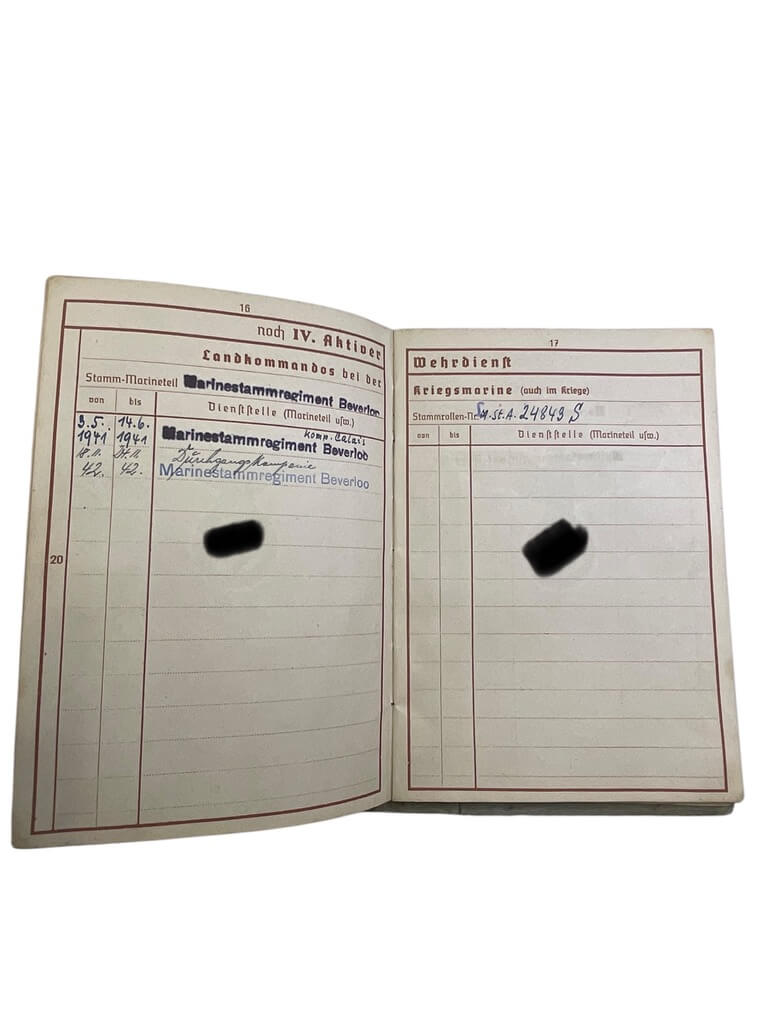 16
noch IV. Aktiver
Landkommandos bei der
Stamm-Marineteil Marinestammregiment Beverloo
von bis Dienststelle (Marineteil usw.)
3.5. 14.6. Komp. Calais
1941 1941 Marinestammregiment Beverloo
18.11. Durchgangskompanie
42. 42. Marinestammregiment Beverloo
20
17
Wehrdienst
Kriegsmarine (auch im Kriege)
Stammrollen-Nr. 24843 S
von bis Dienststelle (Marineteil usw.)